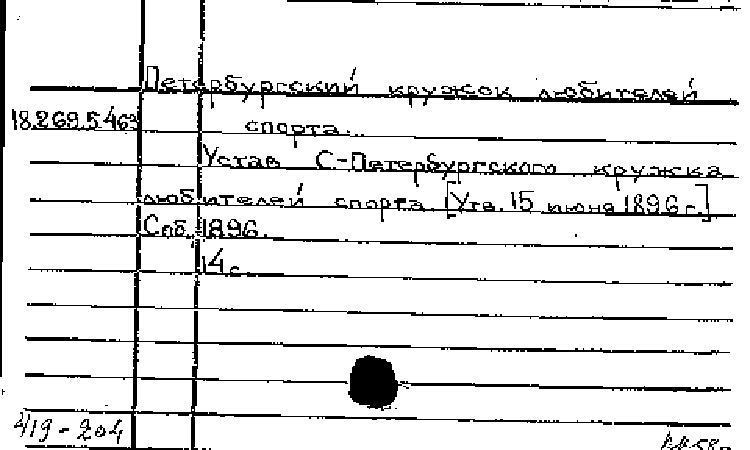 Петербургский кружок любителей
18.269.5.463 спорта.
Устав С-Петербургского кружка
любителей спорта. [Утв. 15 июня 1896 г.]
Спб. 1896.
14 с.